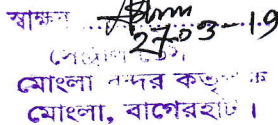 স্বাক্ষর
27-03-19
মোংলা বন্দর কর্তৃপক্ষ
মোংলা, বাগেরহাট।